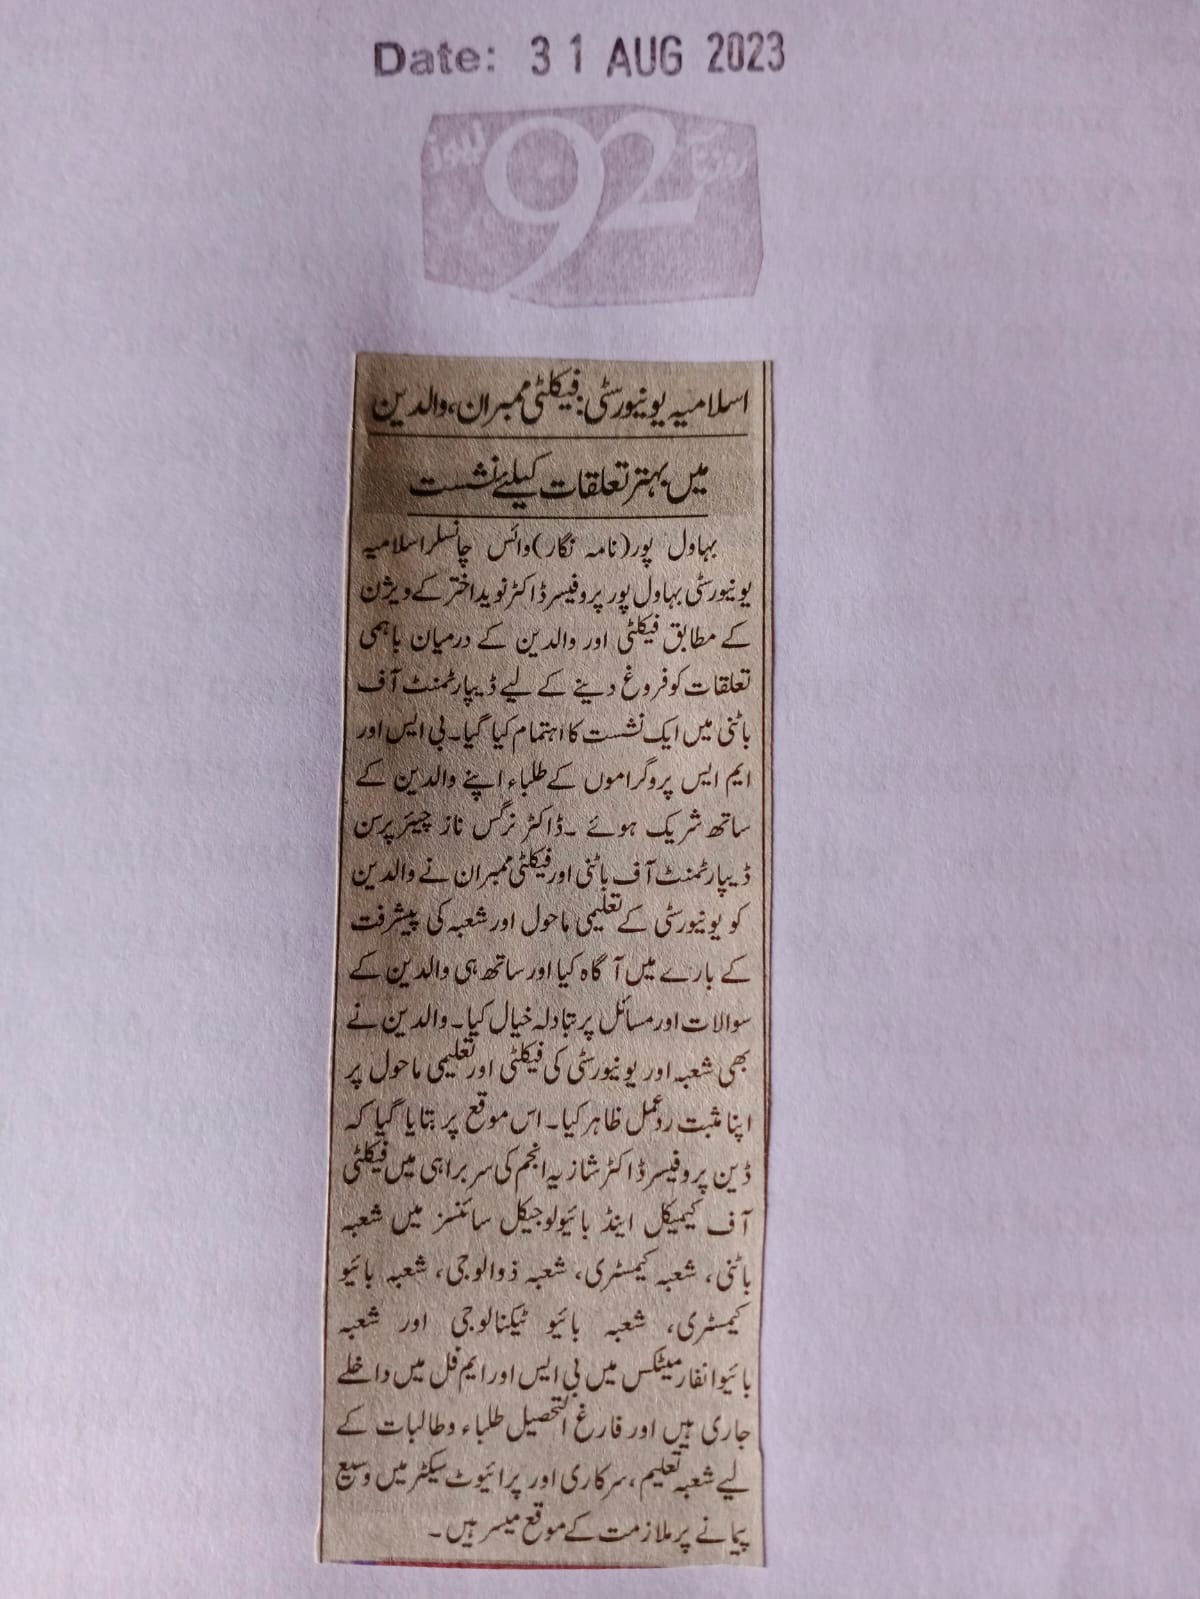 Date: 31 AUG 2023
روزنامہ 92 نیوز
اسلامیہ یونیورسٹی: فیکلٹی ممبران، والدین
میں بہتر تعلقات کیلئے نشست
بہاول پور(نامہ نگار)وائس چانسلر اسلامیہ
یونیورسٹی بہاول پور پروفیسر ڈاکٹر نوید اختر کے ویژن
کے مطابق فیکلٹی اور والدین کے درمیان باہمی
تعلقات کو فروغ دینے کے لیے ڈیپارٹمنٹ آف
باٹنی میں ایک نشست کا اہتمام کیا گیا۔ بی ایس اور
ایم ایس پروگراموں کے طلباء اپنے والدین کے
ساتھ شریک ہوئے ۔ ڈاکٹر نرگس ناز چیئر پرسن
ڈیپارٹمنٹ آف باٹنی اور فیکلٹی ممبران نے والدین
کو یونیورسٹی کے تعلیمی ماحول اور شعبہ کی پیشرفت
کے بارے میں آگاہ کیا اور ساتھ ہی والدین کے
سوالات اور مسائل پر تبادلہ خیال کیا۔ والدین نے
بھی شعبہ اور یونیورسٹی کی فیکلٹی اور تعلیمی ماحول پر
اپنا مثبت ردعمل ظاہر کیا۔ اس موقع پر بتایا گیا کہ
ڈین پروفیسر ڈاکٹر شازیہ انجم کی سربراہی میں فیکلٹی
آف کیمیکل اینڈ بائیولوجیکل سائنسز میں شعبہ
باٹنی، شعبہ کیمسٹری، شعبہ ذوالوجی، شعبہ بائیو
کیمسٹری، شعبہ بائیو ٹیکنالوجی اور شعبہ
بائیو انفارمیٹکس میں بی ایس اور ایم فل میں داخلے
جاری ہیں اور فارغ التحصیل طلباء وطالبات کے
لیے شعبہ تعلیم، سرکاری اور پرائیوٹ سیکٹر میں وسیع
پیمانے پر ملازمت کے موقع میسر ہیں۔